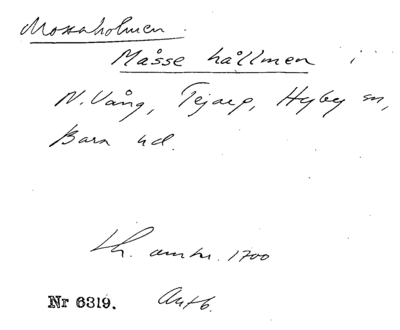 Mossaholmen.
Måsse hållmen i
N. Vång, Tejarp, Hyby sn,
Bara hd.
Lh. omkr. 1700
Nr 6319. Antb.